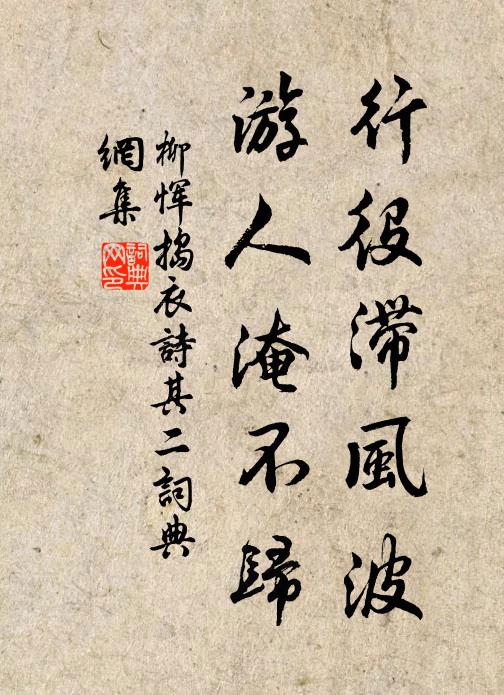 行役滯風波
游人淹不歸
柳惲搗衣詩其二詞典
網集
詞典
网印